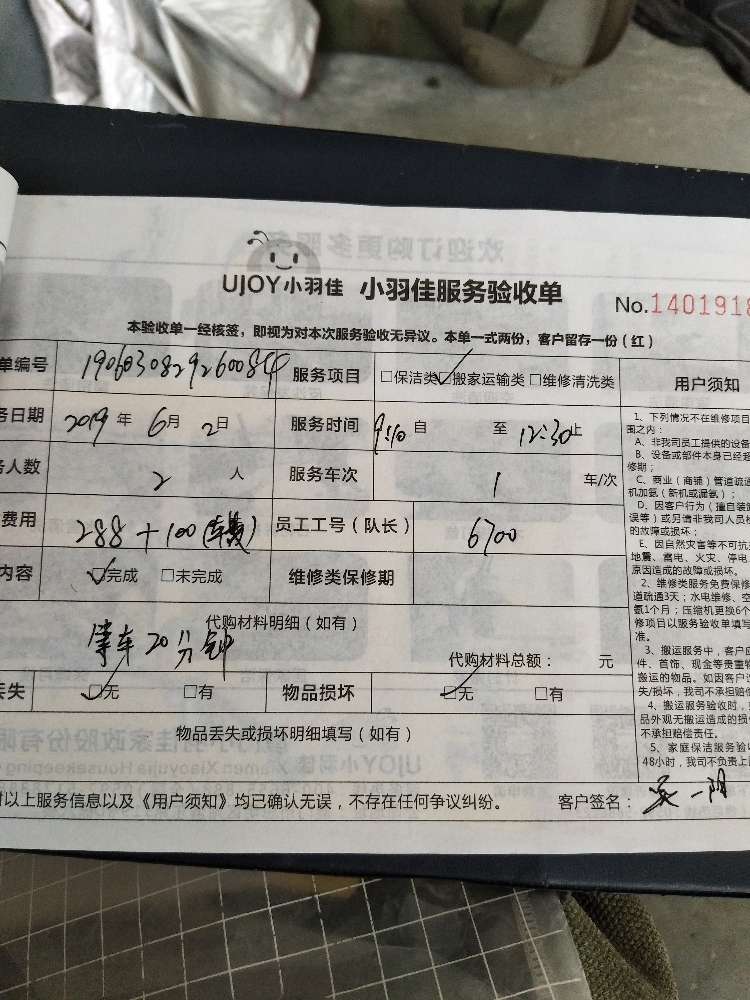 UJOY小羽佳 小羽佳服务验收单
No.1401918
本验收单一经核签，即视为对本次服务验收无异议。本单一式两份，客户留存一份（红）
单编号 服务项目 □保洁类 ☑搬家运输类 □维修清洗类 用户须知
务日期 2019年 6月 2日 服务时间 9:10自 至 12:30止
务人数 2 人 服务车次 1 车/次
费用 288+100 员工工号（队长） 6700
内容 ☑完成 □未完成 维修类保修期
代购材料明细（如有）
等车20分钟
代购材料总额： 元
丢失 ☑无 □有 物品损坏 ☑无 □有
物品丢失或损坏明细填写（如有）
对以上服务信息以及《用户须知》均已确认无误，不存在任何争议纠纷。 客户签名：
1、下列情况不在维修项目
围之内：
A、非我司员工提供的设备
B、设备或部件本身已经超
修期；
C、商业（商铺）管道疏通
机加氨（新机或漏氨）；
D、因客户行为（擅自装
误等）或另请非我司人员
的故障或损坏；
E、因自然灾害等不可抗
地震、雷电、火灾、停电
原因造成的故障或损坏。
2、维修类服务免费保修
道疏通3天；水电维修、空
氨1个月；压缩机更换6个
修项目以服务验收单填写
准。
3、搬运服务中，客户应
件、首饰、现金等贵重物
搬运的物品。如因客户
失/损坏，我司不承担赔
4、搬运服务验收时，
品外观无搬运造成的损
不承担赔偿责任。
5、家庭保洁服务验
48小时，我司不负责上